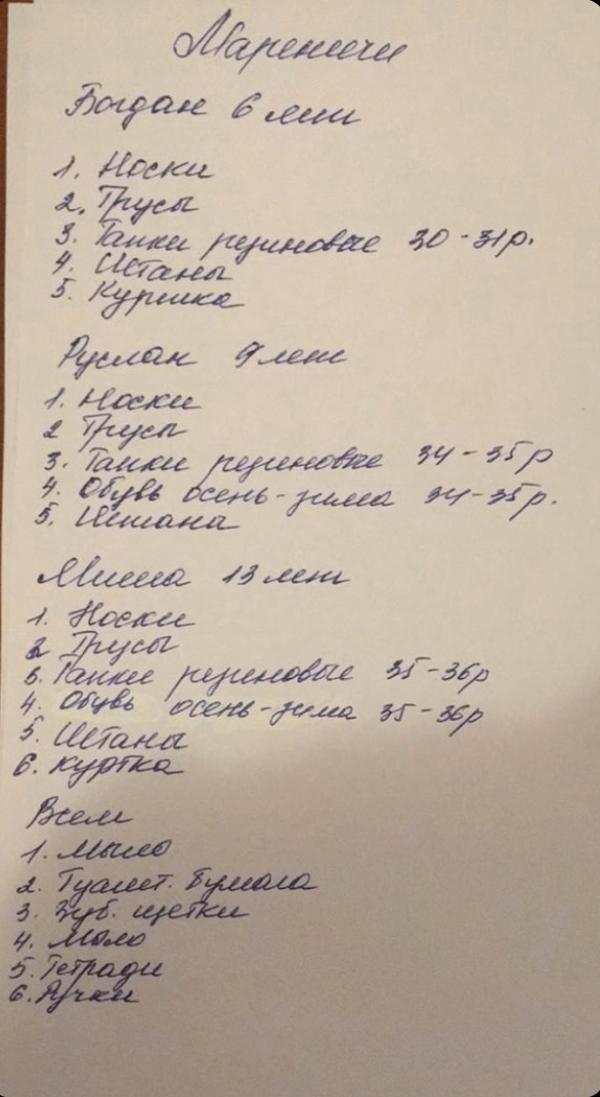 Мареничи
Богдан 6 лет
1. Носки
2. Трусы
3. Тапки резиновые 30-31р.
4. Штаны
5. Куртка
Руслан 9 лет
1. Носки
2 Трусы
3. Тапки резиновые 34-35р
4. Обувь осень-зима 34-35р.
5. Штана
Миша 13 лет
1. Носки
2 Трусы
3. Тапки резиновые 35-36р
4. Обувь осень-зима 35-36р
5. Штаны
6. куртка
Всем
1. мыло
2. Туалет. бумага
3. Зуб. щетки
4. Мыло
5. Тетради
6. Ручки